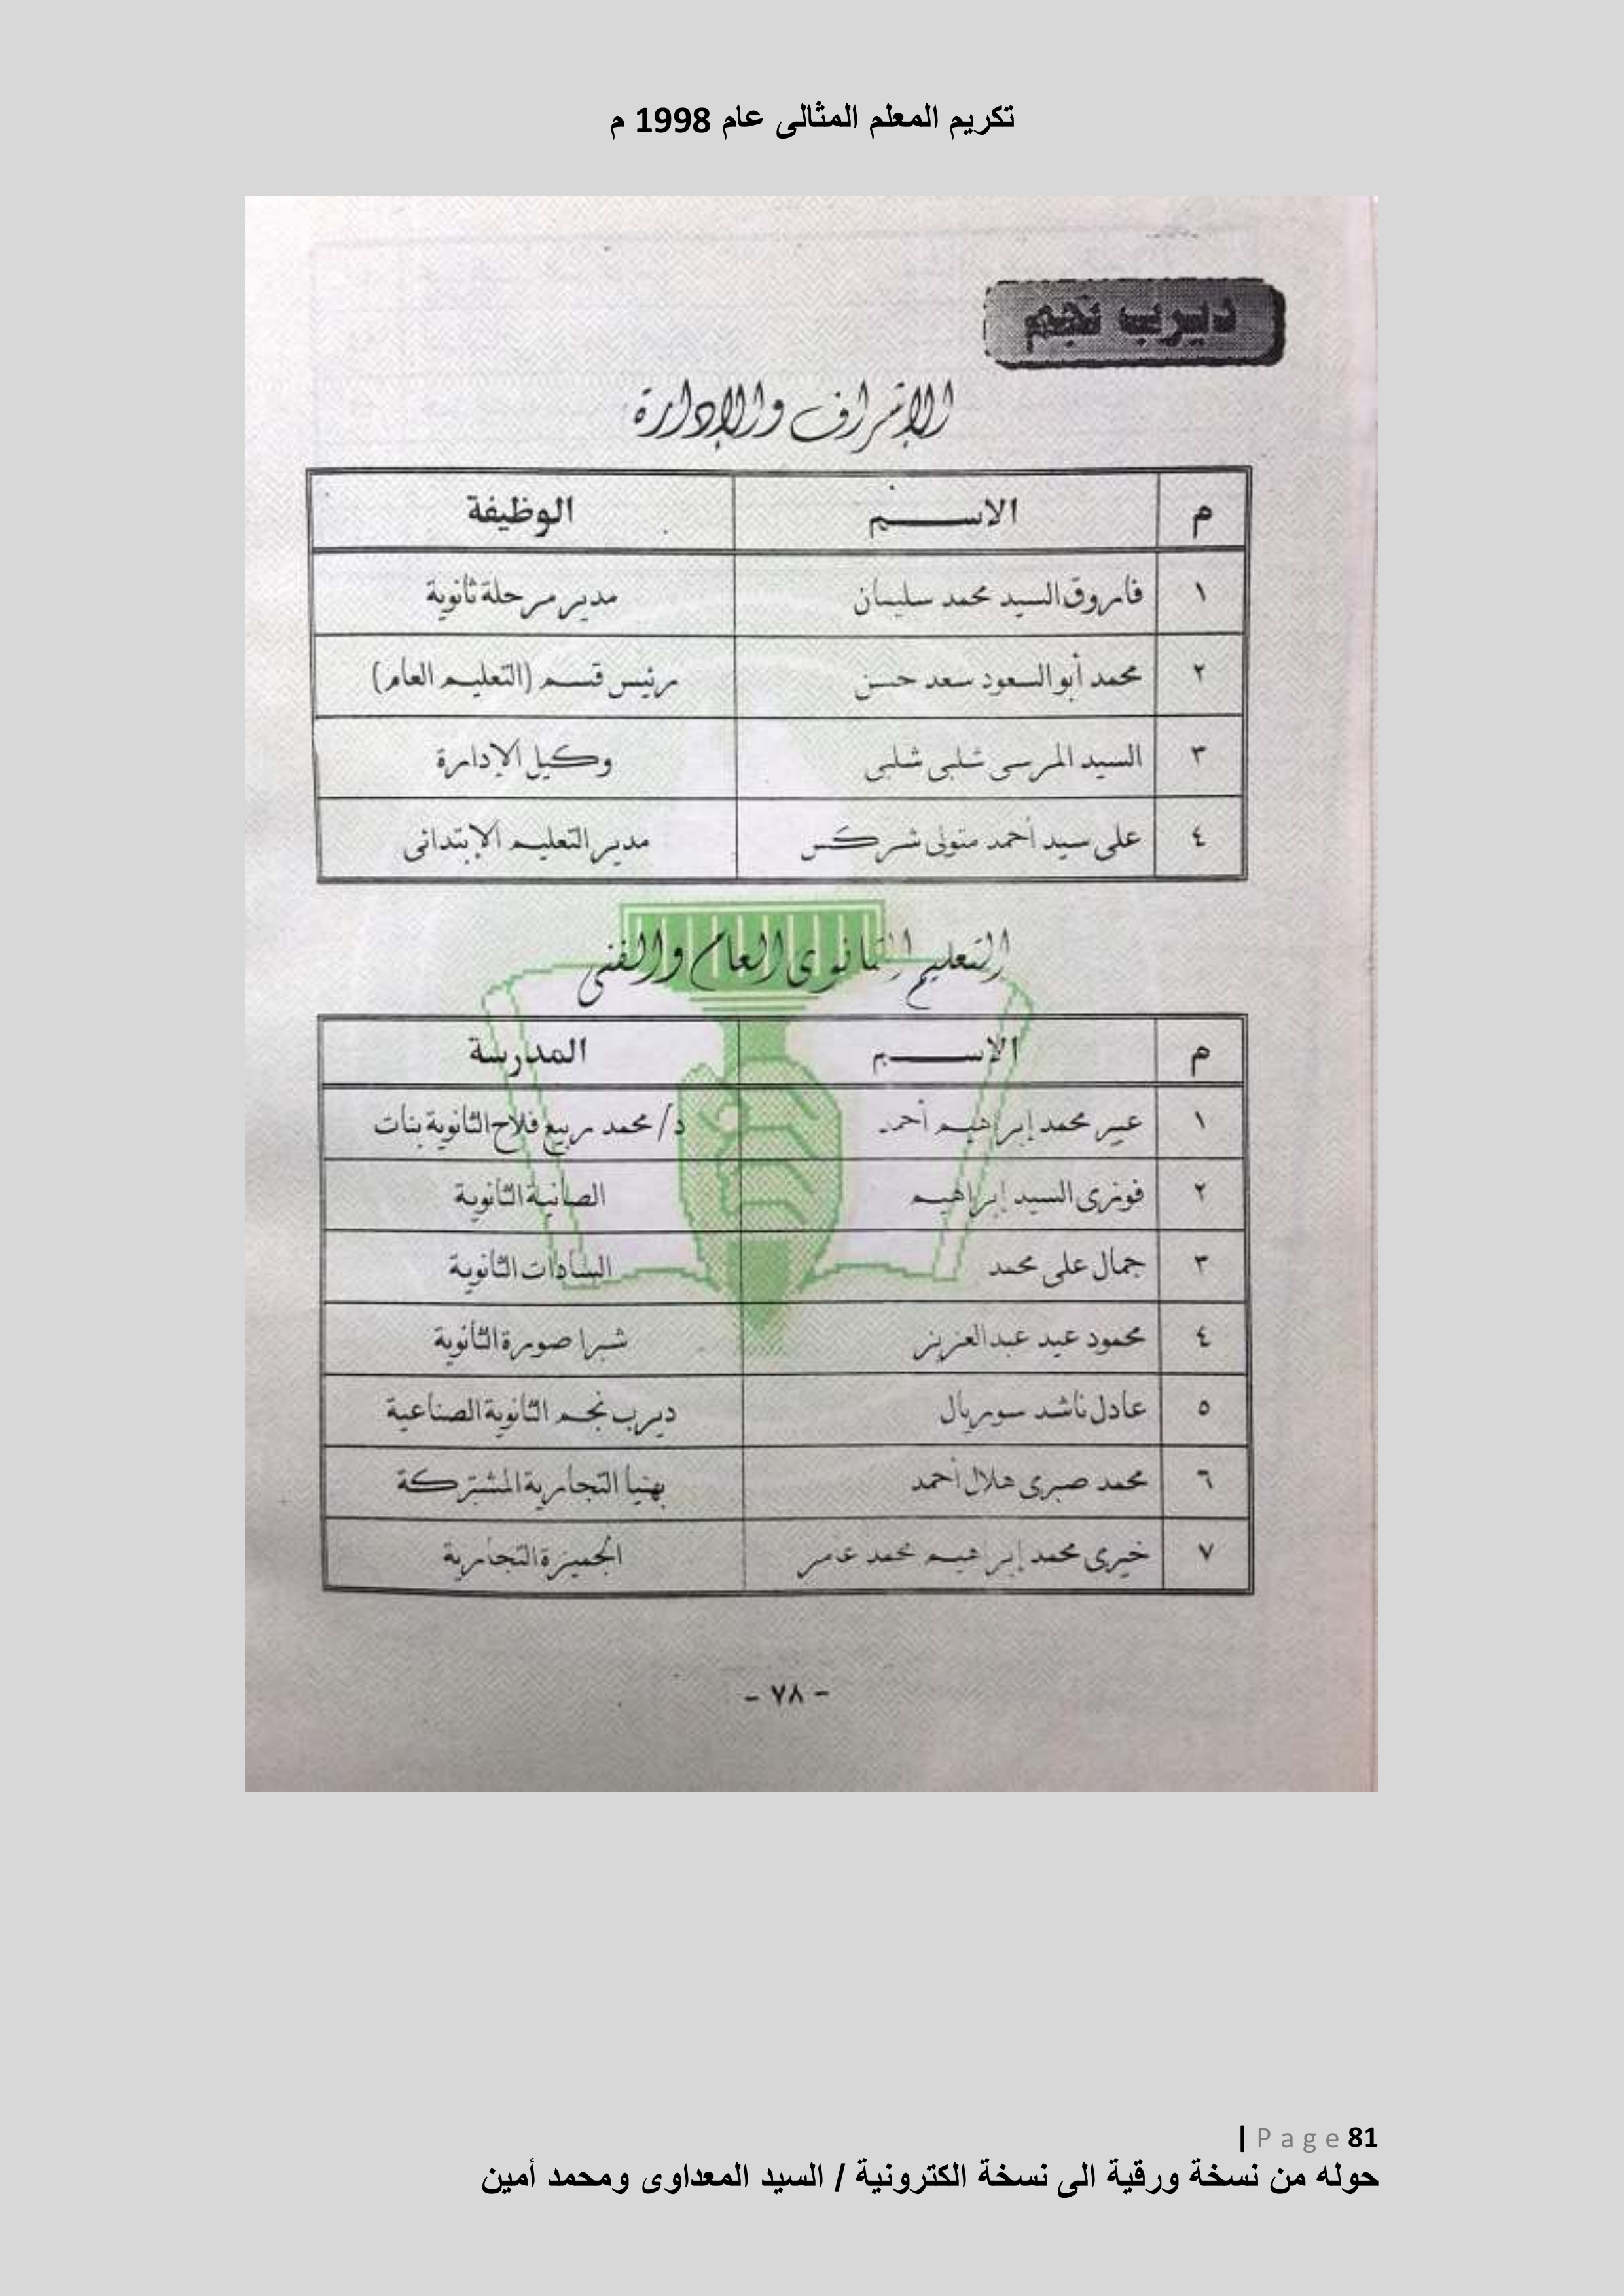 تكريم المعلم المثالى عام 1998 م
ديرب نجم
الإشراف والإدارة
م الاسم الوظيفة
١ فاروق السيد محمد سليمان مدير مرحلة ثانوية
٢ محمد أبو السعود سعد حسن رئيس قسم (التعليم العام)
٣ السيد المرسى شلبى شلبى وكيل الإدارة
٤ على سيد أحمد متولى شركس مدير التعليم الإبتدائى
التعليم الثانوى العام والفنى
م الاسم المدرسة
١ عبير محمد إبراهيم أحمد د/ محمد ربيع فلاح الثانوية بنات
٢ فوزى السيد إبراهيم الصانية الثانوية
٣ جمال على محمد السادات الثانوية
٤ محمود عيد عبد العزيز شبرا صورة الثانوية
٥ عادل ناشد سوريال ديرب نجم الثانوية الصناعية
٦ محمد صبرى هلال أحمد بهنيا التجارية المشتركة
٧ خيرى محمد إبراهيم محمد عامر الجميزة التجارية
- ٧٨ -
| Page 81
حوله من نسخة ورقية الى نسخة الكترونية / السيد المعداوى ومحمد أمين